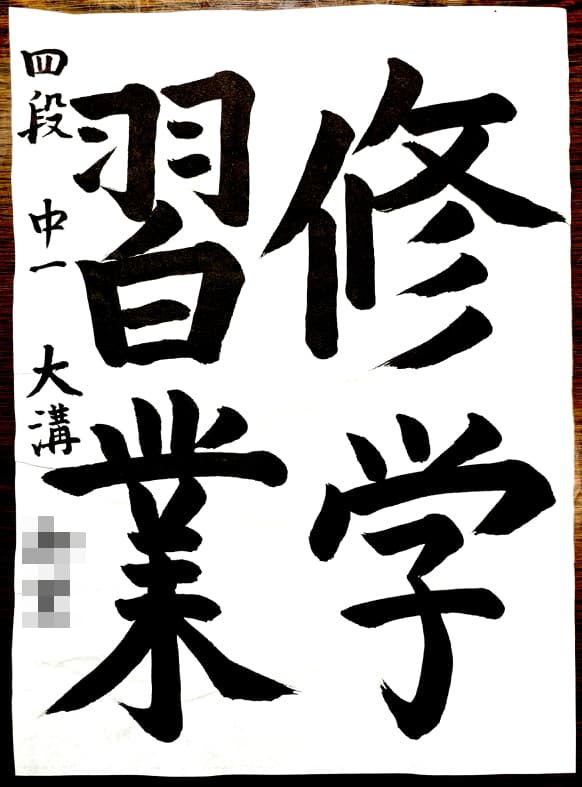 修学
習業
四段 中一 大溝